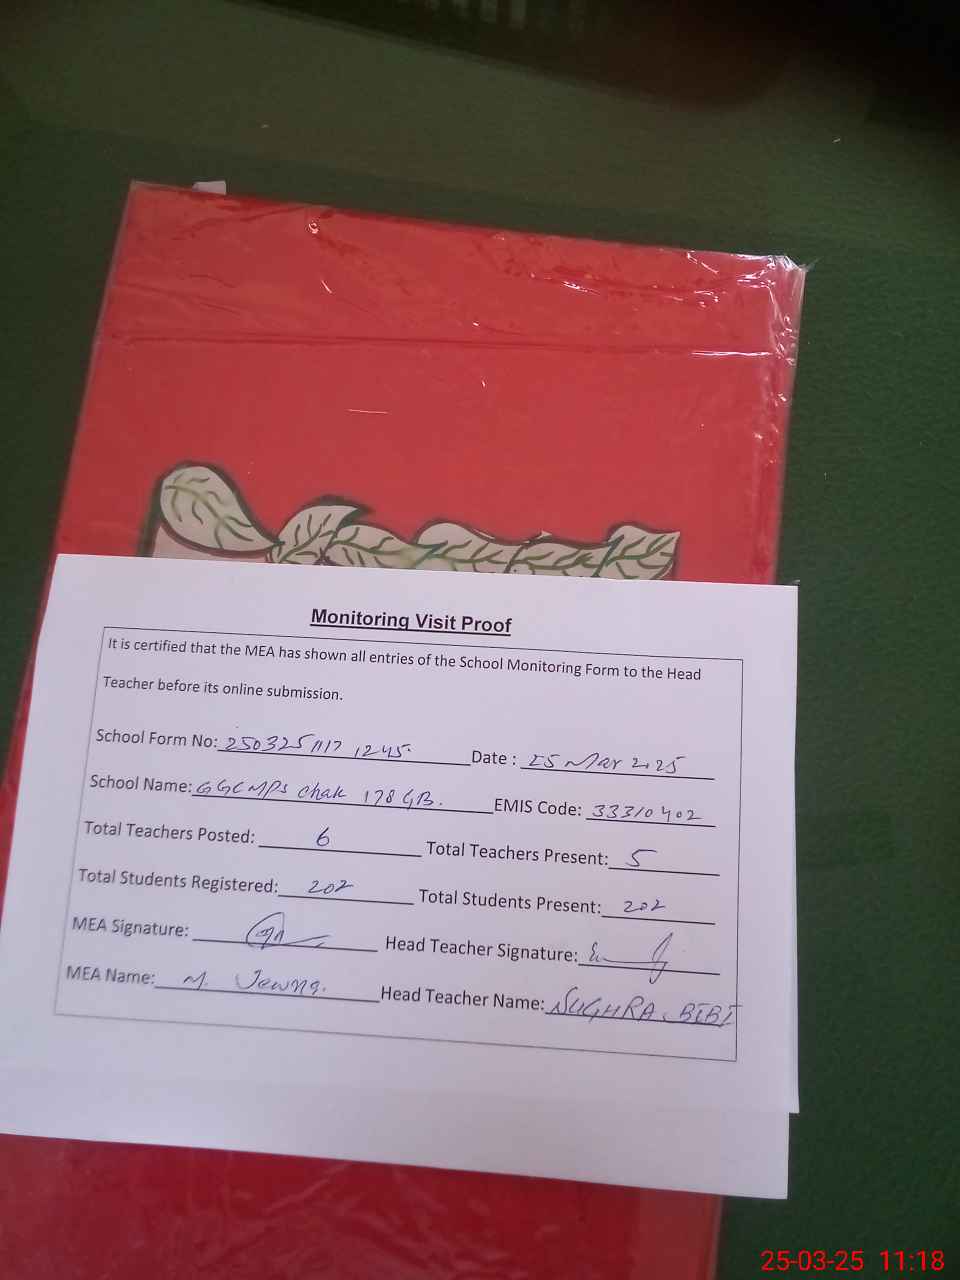 Monitoring Visit Proof
It is certified that the MEA has shown all entries of the School Monitoring Form to the Head
Teacher before its online submission.
School Form No: 250325 1117 1245 Date : 25 Mar 2025
School Name: GGCMPS Chak 178 GB. EMIS Code: 33310402
Total Teachers Posted: 6 Total Teachers Present: 5
Total Students Registered: 202 Total Students Present: 202
MEA Signature: Head Teacher Signature:
MEA Name: M. Head Teacher Name: SUGHRA BIBI
25-03-25 11:18